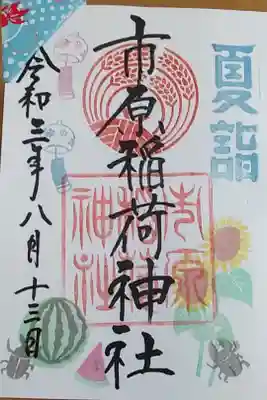 夏詣
市原稲荷神社
令和三年八月十三日
市原
稲荷
神社